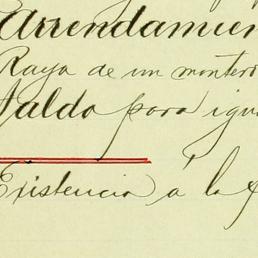 Arrendamien
Raya de un montero
Saldo para igu
Existencia á la